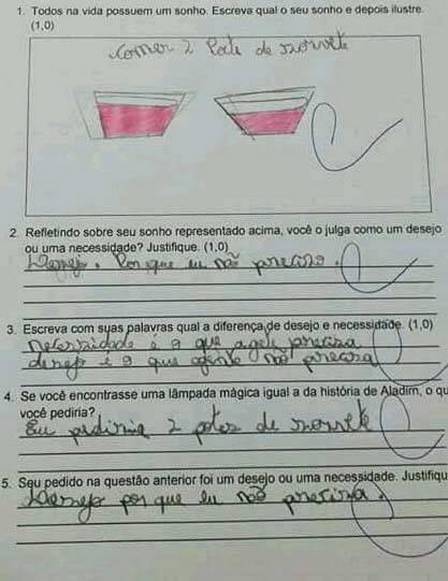 1. Todos na vida possuem um sonho. Escreva qual o seu sonho e depois ilustre.
(1,0)
Comer 2 Pote de sorvete
2. Refletindo sobre seu sonho representado acima, você o julga como um desejo
ou uma necessidade? Justifique. (1,0)
Desejo. Por que eu não preciso.
3. Escreva com suas palavras qual a diferença de desejo e necessidade. (1,0)
Necersidade é o que agete precisa
desejo é o que agente não precisa
4. Se você encontrasse uma lâmpada mágica igual a da história de Aladim, o qu
você pediria?
Eu pediria 2 potes de sorvete
5. Seu pedido na questão anterior foi um desejo ou uma necessidade. Justifiqu
Desejo por que eu não preciso.